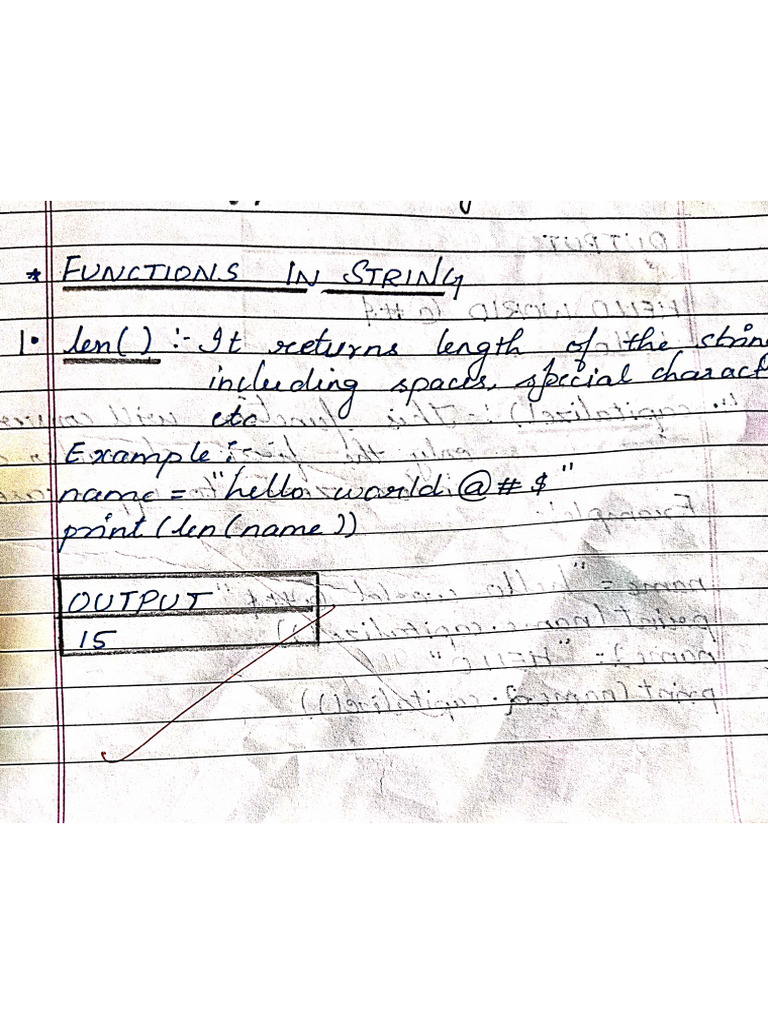 * FUNCTIONS IN STRING
1. len() :- It returns length of the strin
including spaces, special charact
etc
Example :
name = "hello world @#$"
print(len(name))
OUTPUT
15